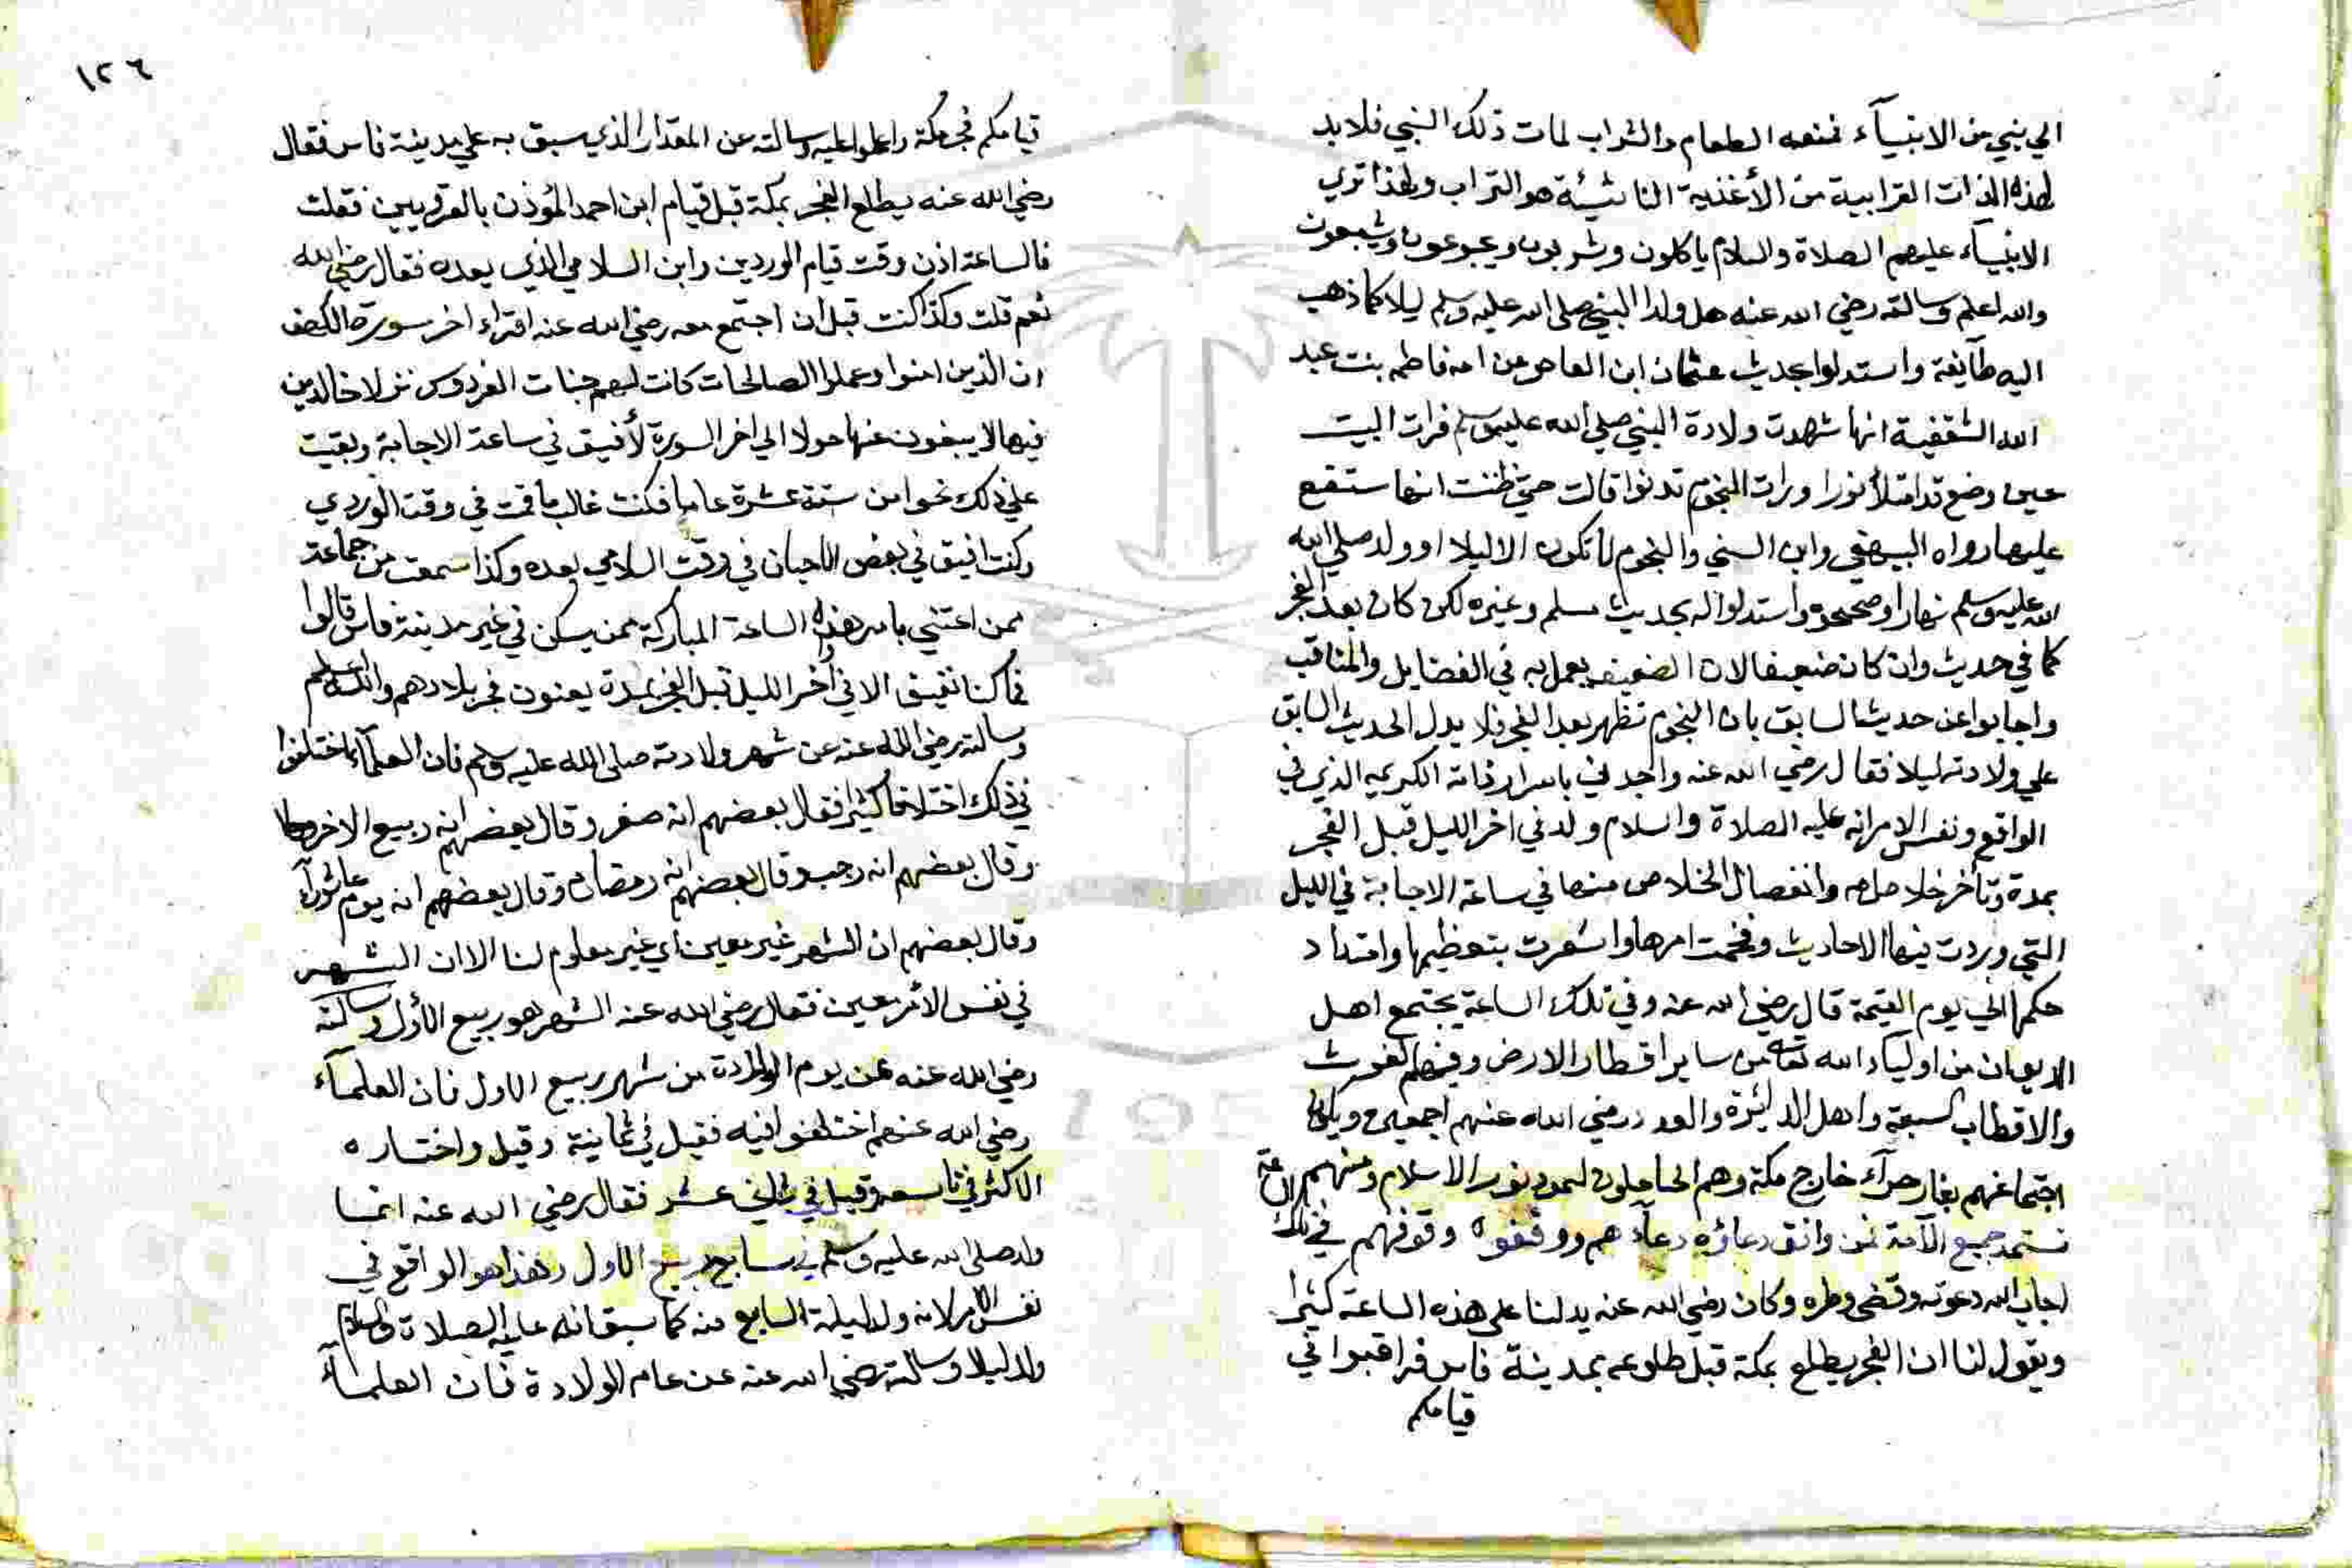 الي نبي من الانبيآء فمنعه الطعام والشراب لمات ذلك النبي فلابد
لهذه الذات الترابية من الأغذية الناشئة هو التراب ولهذا تري
الانبيآء عليهم الصلاة والسلام ياكلون ويشربون ويجوعون ويشبعون
والله اعلم وسالته رضي الله عنه هل ولد النبي صلي الله عليه وسلم ليلا كما ذهب
اليه طآيفة واستدلوا بحديث عثمان ابن العاص عن امه فاطمه بنت عبد
الله الشقفية انها شهدت ولادة النبي صلي الله عليه وسلم فرات البيت
حين وضع قد امتلأ نورا ورات النجوم تدنوا قالت حتي ظننت انها ستقع
عليها رواه البيهقي وابن السني والنجوم لا تكون الا ليلا او ولد صلي الله
الله عليه وسلم نهارا وصححوه واستدلوا له بحديث مسلم وغيره لكن كان بعد الفجر
كما في حديث وان كان ضعيفا لان الضعيف يعمل به في الفضايل والمناقب
واجابوا عن حديثنا السابق بان النجوم تظهر بعد الفجر فلا يدل الحديث السابق
علي ولادته ليلا فقال رضي الله عنه واجدني باسرار ذاته الكريم الذي في
الواقع ونفس الامر انه عليه الصلاة والسلام ولد في اخر الليل قبل الفجر
بمدة وتأخر خلاص امه وانفصال الخلاص منها في ساعة الاجابة في الليل
التي وردت فيها الاحاديث وفخمت امرها واشعرت بتعظيمها وامتداد
حكمها الي يوم القيمة قال رضي الله عنه وفي تلك الساعة يجتمع اهل
الديوان من اولياء الله تعالي من ساير اقطار الارض وفيهم الغوث
والاقطاب السبعة واهل الدائرة والعدد رضي الله عنهم اجمعين ويكون
اجتماعهم بغار حرآء خارج مكة وهم الحاملون لعمود نور الاسلام ومنهم
تستمد جميع الآمة فمن وافق دعاؤه دعآءهم ووقفوه وقوفهم في تلك الساعة
اجاب الله دعوته وقضي وطره وكان رضي الله عنه يدلنا علي هذه الساعة كثيرا
ويقول لنا ان الفجر يطلع بمكة قبل طلوعه بمدينة فاس فراقبوا في
قيامكم
١٢٦
قيامكم فجر مكة واعملوا عليه وسالته عن المقدار الذي سبق به علي مدينة فاس فقال
رضي الله عنه يطلع الفجر بمكة قبل قيام ابن احمد المؤذن بالقرويين فقلت
فالساعة اذن وقت قيام الوردين وابن السلامي الذي بعده فقال رضي الله
نعم قلت وكذا كنت قبل ان اجتمع معه رضي الله عنه اقراء اخر سورة الكهف
ان الذين امنوا وعملوا الصالحات كانت لهم جنات الفردوس نزلا خالدين
فيها لا يبغون عنها حولا الي اخر السورة لأفيق في ساعة الاجابة وبقيت
علي ذلك نحوا من ستة عشرة عاما فكنت غالب ما قمت في وقت الوردي
وكنت افيق في بعض الاحيان في وقت السلامي بعده وكذا سمعت من جماعة
ممن اعتني بامر هذه الساعة المباركة ممن يسكن في غير مدينة فاس قالوا
فما كنا نفيق الا في آخر الليل قبل الفجر بمدة يعنون فجر بلادهم والله اعلم
وسالته رضي الله عنه عن شهر ولادته صلي الله عليه وسلم فان العلمآء اختلفوا
في ذلك اختلافا كثيرا فقال بعضهم انه صفر وقال بعضهم انه ربيع الاخر
وقال بعضهم انه رجب وقال بعضهم انه رمضان وقال بعضهم انه يوم عاشورآء
وقال بعضهم ان الشهر غير معين اي غير معلوم لنا الا ان الشهر
في نفس الأمر معين فقال رضي الله عنه الشهر هو ربيع الأول وسالته
رضي الله عنه عن يوم الولادة من شهر ربيع الاول فان العلمآء
رضي الله عنهم اختلفوا فيه فقيل في ثمانية وقيل واختاره
الاكثر في تاسعه وقيل في ثاني عشر فقال رضي الله عنه انما
ولد صلي الله عليه وسلم في سابع ربيع الاول وهذا هو الواقع في
نفس الامر لانه ولد ليلة السابع منه كما سبق انه عليه الصلاة والسلام
ولد ليلا وسالته رضي الله عنه عن عام الولادة فان العلمآء